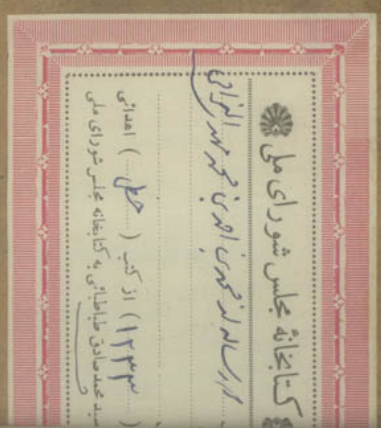 کتابخانهٔ مجلس شورای ملی
محمد بن احمد بن محمد مهدی النراقی
(۱۲۳۳) از کتب (خطی) اهدائی
سید محمد صادق طباطبائی به کتابخانه مجلس شورای ملی